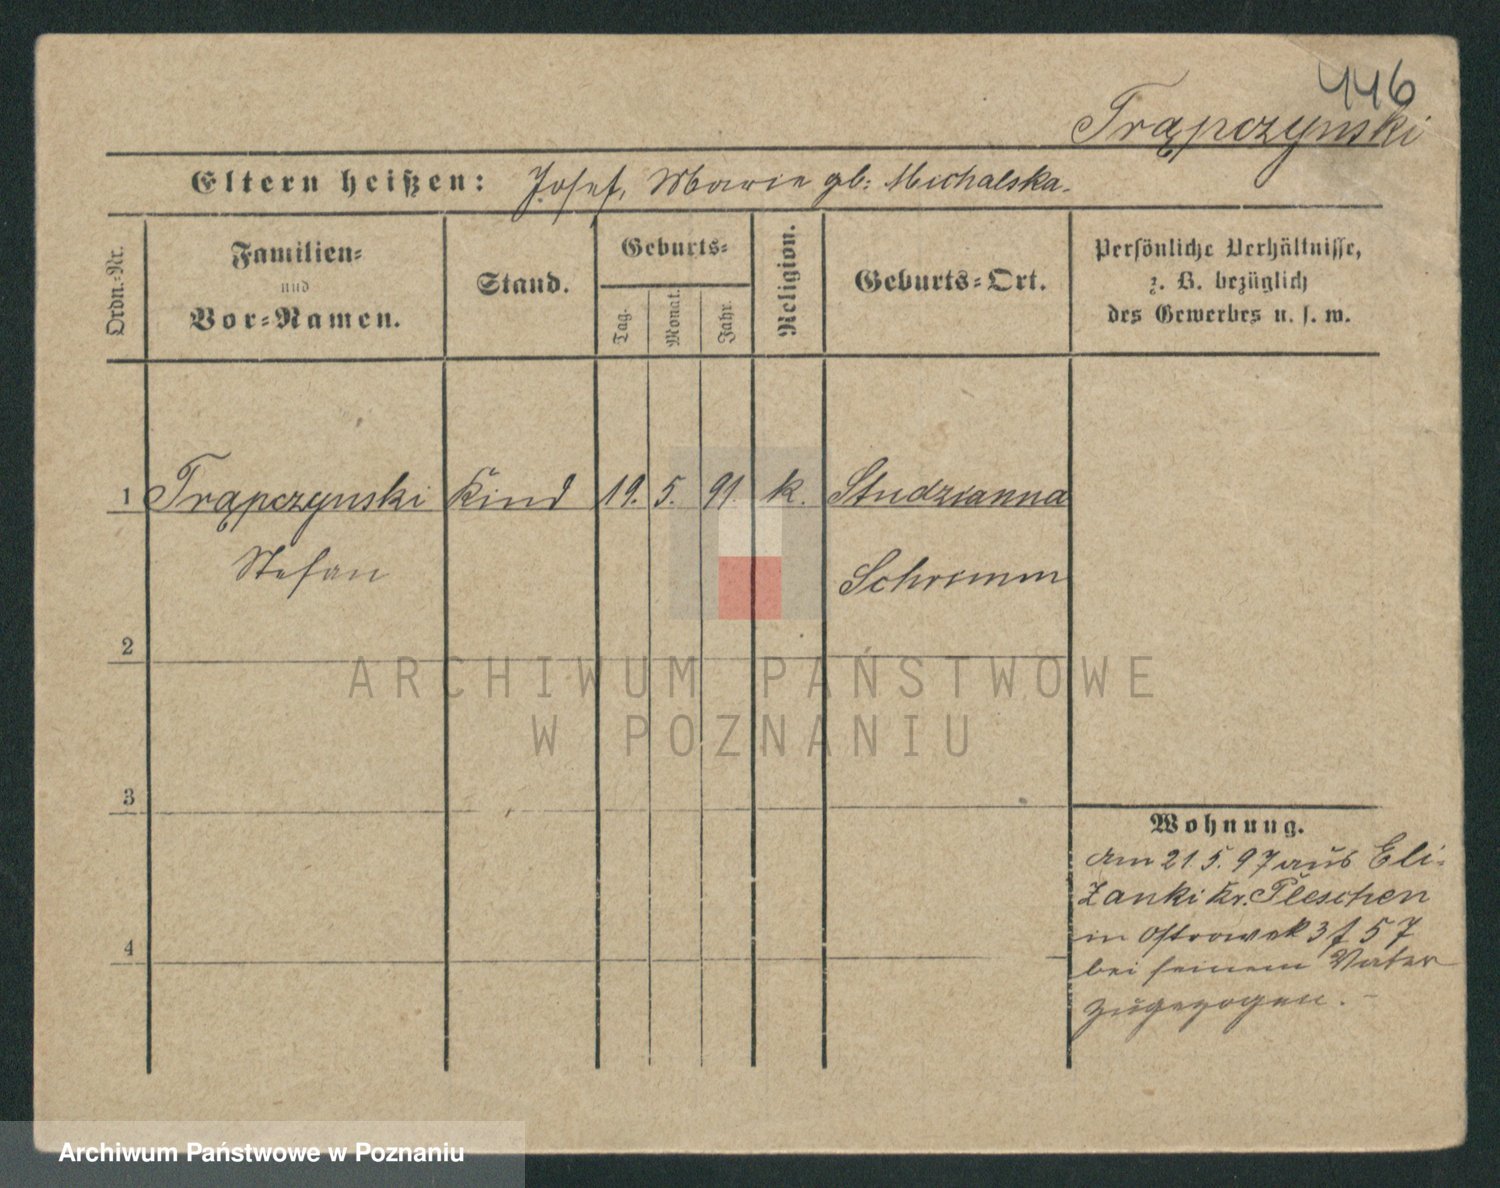 446
Trąpczynski
Eltern heißen: Josef, Marie gb: Michalska.
Ordn.-Nr.
Familien-
und
Vor-Namen.
Stand.
Geburts-
Tag.
Monat.
Jahr.
Religion.
Geburts-Ort.
Persönliche Verhältnisse,
z. B. bezüglich
des Gewerbes u. s. w.
1 Trąpczynski Kind 19. 5. 91. k. Studzianna
Stefan Schrimm
2
3
4
Wohnung.
am 21.5.97 aus Eli-
zanki Kr. Pleschen
in Ostrowek 3 57
bei seinem Vater
zugezogen. -
ARCHIWUM PAŃSTWOWE
W POZNANIU
Archiwum Państwowe w Poznaniu